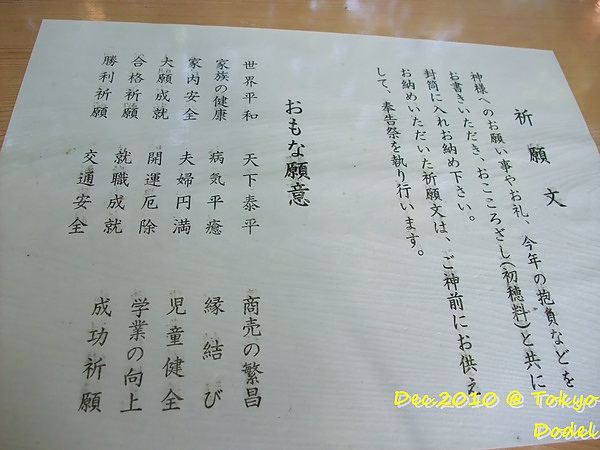 祈願文
神様へのお願い事やお礼、今年の抱負などを
お書きいただき、おこころざし(初穂料)と共に
封筒に入れお納め下さい。
お納めいただいた祈願文は、ご神前にお供え
して、奉告祭を執り行います。
おもな願意
世界平和 天下泰平 商売の繁昌
家族の健康 病気平癒 縁結び
家内安全 夫婦円満 児童健全
大願成就 開運厄除 学業の向上
合格祈願 就職成就 成功祈願
勝利祈願 交通安全
Dec.2010 @ Tokyo
Dodel